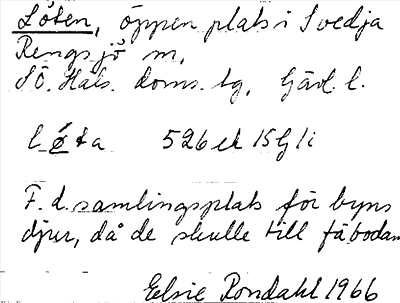 Löten, öppen plats i Svedja
Rengsjö sn,
SÖ. Häls. doms. tg, Gävl. l.
526 ek 15 G/i
F. d. samlingsplats för byns
djur, då de skulle till fäbodarna
Elsie Rondahl 1966